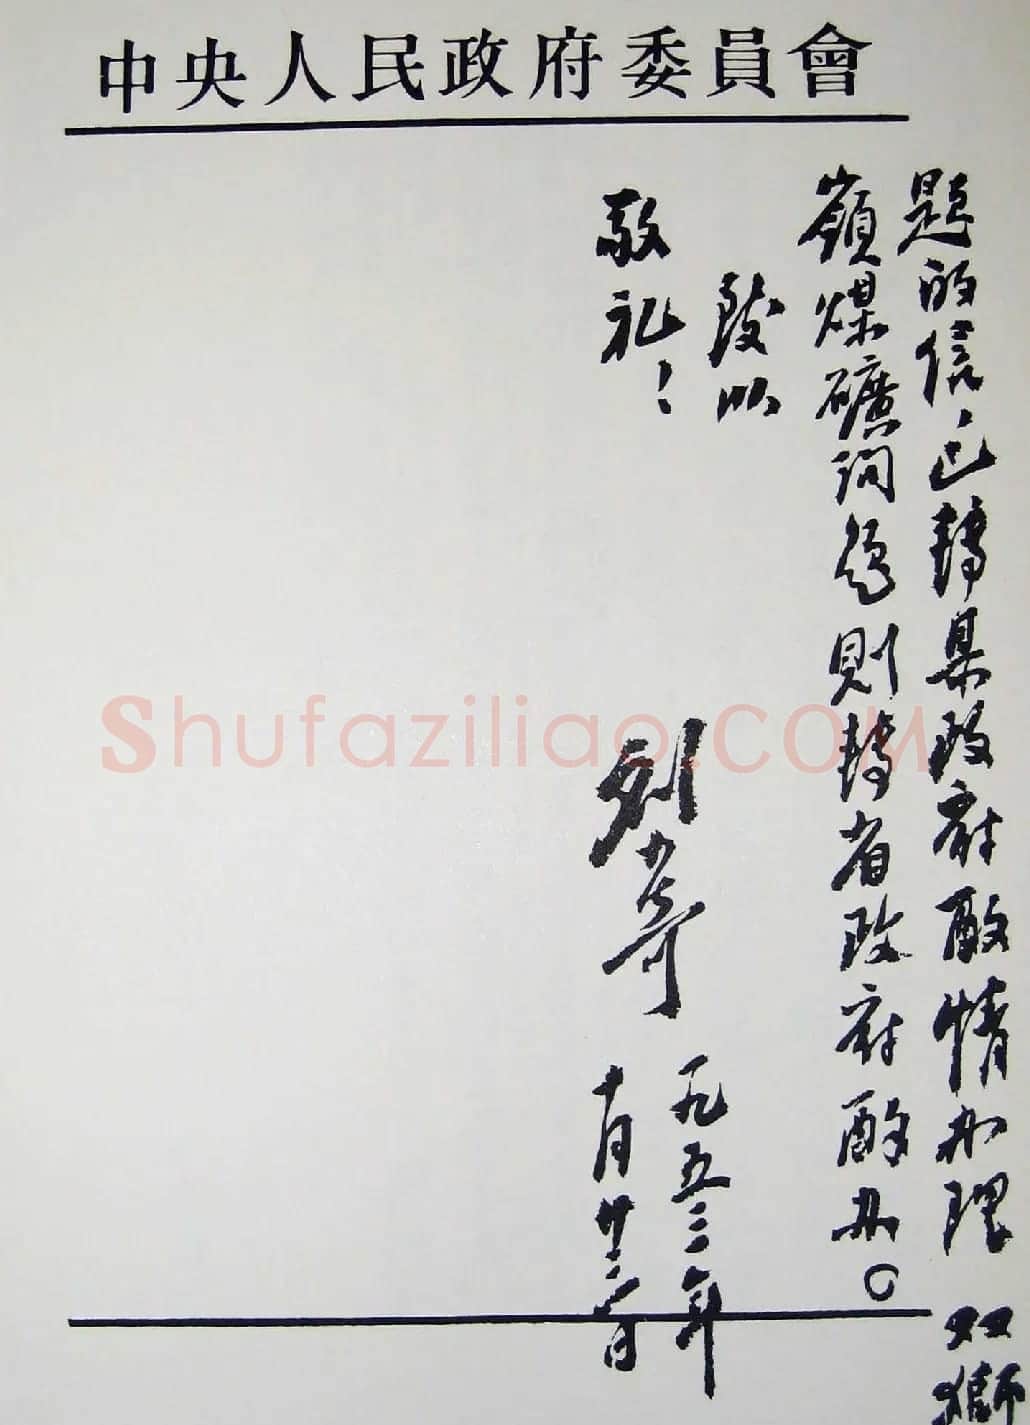 中央人民政府委員會
題的信，已轉县政府酌情办理 双獅
嶺煤礦问题则轉省政府酌办。
致以
敬礼！
刘少奇
一九五二年
十月廿二日
Shufaziliao.COM